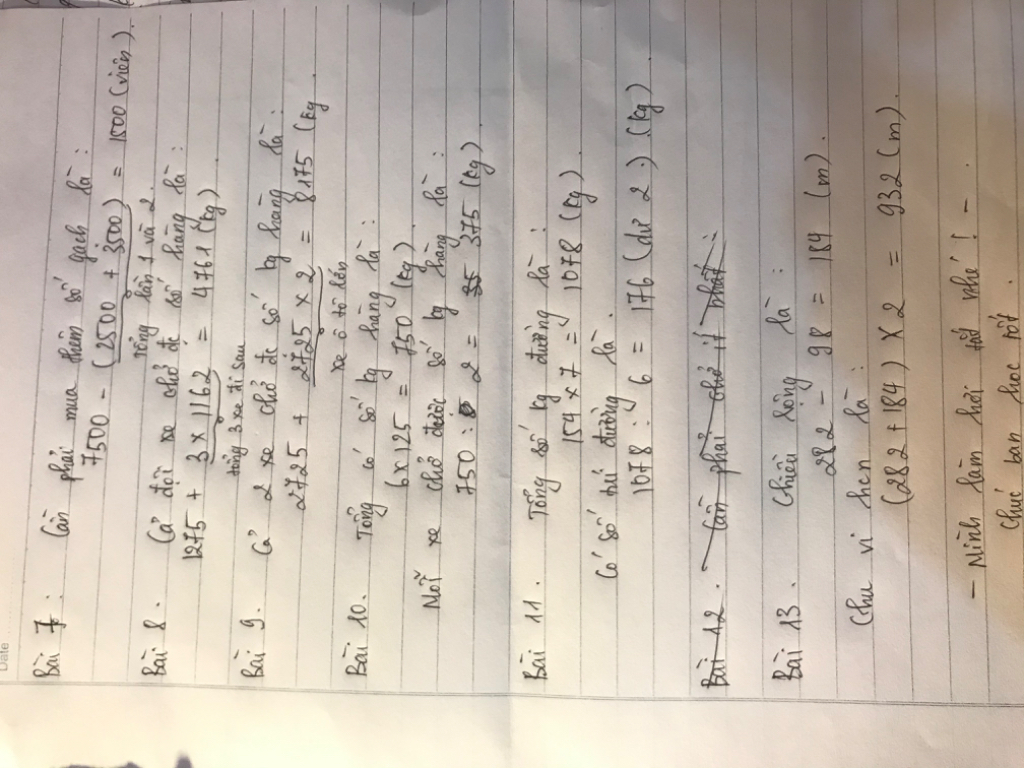 Date
Bài 7: Cần phải mua thêm số gạch là:
7500 - (2500 + 3500) = 1500 (viên).
Tổng lần 1 và 2
Bài 8. Cả đội xe chở đc số hàng là:
1275 + 3 x 1162 = 4761 (kg)
tổng 3 xe đi sau
Bài 9. Cả 2 xe chở đc số kg hàng là:
2725 + 2725 x 2 = 8175 (kg
xe ô tô lớn
Bài 10. Tổng có số kg hàng là:
6 x 125 = 750 (kg)
Mỗi xe chở được số kg hàng là:
750 : 2 = 375 (kg)
Bài 11. Tổng số kg đường là:
154 x 7 = 1078 (kg)
Có số túi đường là.
1078 : 6 = 176 (dư 2) (kg)
Bài 12. Cần phải chở ít nhất :
Bài 13. Chiều rộng là:
282 - 98 = 184 (m).
Chu vi hcn là:
(282 + 184) x 2 = 932 (m).
- Mình làm hơi tắt nhé! -
Chúc bạn học tốt.